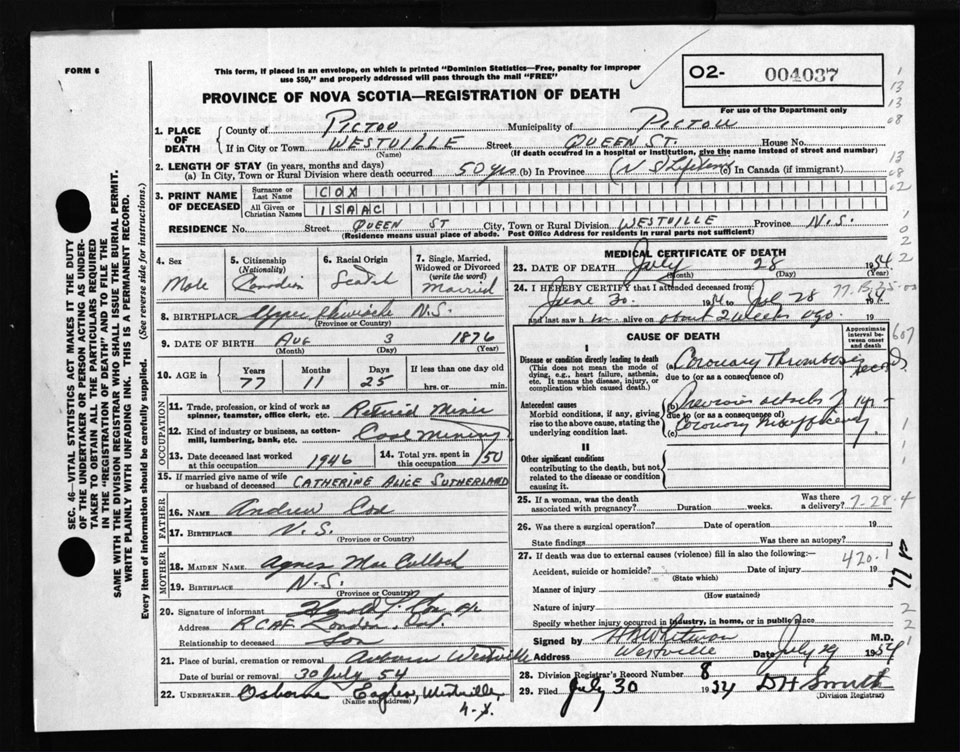 FORM 6
This form, if placed in an envelope, on which is printed "Dominion Statistics—Free, penalty for improper
use $50," and properly addressed will pass through the mail "FREE"
O2- 004037
For use of the Department only
PROVINCE OF NOVA SCOTIA—REGISTRATION OF DEATH
1. PLACE OF DEATH { County of PICTOU Municipality of PICTOU
If in City or Town WESTVILLE (Name) Street QUEEN ST. House No.
(If death occurred in a hospital or institution, give the name instead of street and number)
2. LENGTH OF STAY (in years, months and days)
(a) In City, Town or Rural Division where death occurred 50 yrs (b) In Province (N S Lifetime (c) In Canada (if immigrant)
3. PRINT NAME OF DECEASED { Surname or Last Name COX
All Given or Christian Names ISAAC
RESIDENCE No. Street QUEEN ST City, Town or Rural Division WESTVILLE Province N.S.
(Residence means usual place of abode. Post Office Address for residents in rural parts not sufficient)
4. Sex Male
5. Citizenship (Nationality) Canadian
6. Racial Origin Scotch
7. Single, Married, Widowed or Divorced (write the word) Married
8. BIRTHPLACE Upper N.S.
(Province or Country)
9. DATE OF BIRTH AUG 3 1876
(Month) (Day) (Year)
10. AGE in { Years 77 Months 11 Days 25 If less than one day old
hrs. or min.
OCCUPATION
11. Trade, profession, or kind of work as spinner, teamster, office clerk, etc. Retired Miner
12. Kind of industry or business, as cotton-mill, lumbering, bank, etc. Coal Mining
13. Date deceased last worked at this occupation 1946
14. Total yrs. spent in this occupation 50
15. If married give name of wife or husband of deceased CATHERINE ALICE SUTHERLAND
FATHER
16. NAME Andrew Cox
17. BIRTHPLACE N.S.
(Province or Country)
MOTHER
18. MAIDEN NAME Agnes MacCulloch
19. BIRTHPLACE N.S.
(Province or Country)
20. Signature of informant Harold Cox
Address RCAF London, Ont.
Relationship to deceased Son
21. Place of burial, cremation or removal Auburn Westville
Date of burial or removal 30 July 54
22. UNDERTAKER Osborne Eagles, Westville,
N.S.
(Name and Address)
MEDICAL CERTIFICATE OF DEATH
23. DATE OF DEATH July 28 1954
(Month) (Day)
24. I HEREBY CERTIFY that I attended deceased from:
June 30 1954 to Jul 28 1954
and last saw h im alive on about 2 weeks ago.
CAUSE OF DEATH
Approximate interval between onset and death
I
Disease or condition directly leading to death
(This does not mean the mode of dying, e.g., heart failure, asthenia, etc. It means the disease, injury, or complication which caused death.)
(a) Coronary Thrombosis
due to (or as a consequence of)
Antecedent causes
Morbid conditions, if any, giving rise to the above cause, stating the underlying condition last.
(b) Previous attacks
due to (or as a consequence of)
(c) Coronary Insufficiency
II
Other significant conditions
contributing to the death, but not related to the disease or condition causing it.
25. If a woman, was the death associated with pregnancy? Duration weeks. Was there a delivery?
7-28-4
26. Was there a surgical operation? Date of operation 19
State findings Was there an autopsy?
27. If death was due to external causes (violence) fill in also the following:
420.1
Accident, suicide or homicide? Date of injury 19
(State which)
Manner of injury
(How sustained)
Nature of injury
Specify whether injury occurred in industry, in home, or in public place
Signed by H B Whitman M.D.
Address Westville Date July 29 1954
28. Division Registrar's Record Number 8
29. Filed July 30 1954 D H Smith
(Division Registrar)
SEC. 46—VITAL STATISTICS ACT MAKES IT THE DUTY
OF THE UNDERTAKER OR PERSON ACTING AS UNDER-
TAKER TO OBTAIN ALL THE PARTICULARS REQUIRED
IN THE "REGISTRATION OF DEATH" AND TO FILE THE
SAME WITH THE DIVISION REGISTRAR WHO SHALL ISSUE THE BURIAL PERMIT.
WRITE PLAINLY WITH UNFADING INK. THIS IS A PERMANENT RECORD.
Every item of information should be carefully supplied. (See reverse side for instructions.)